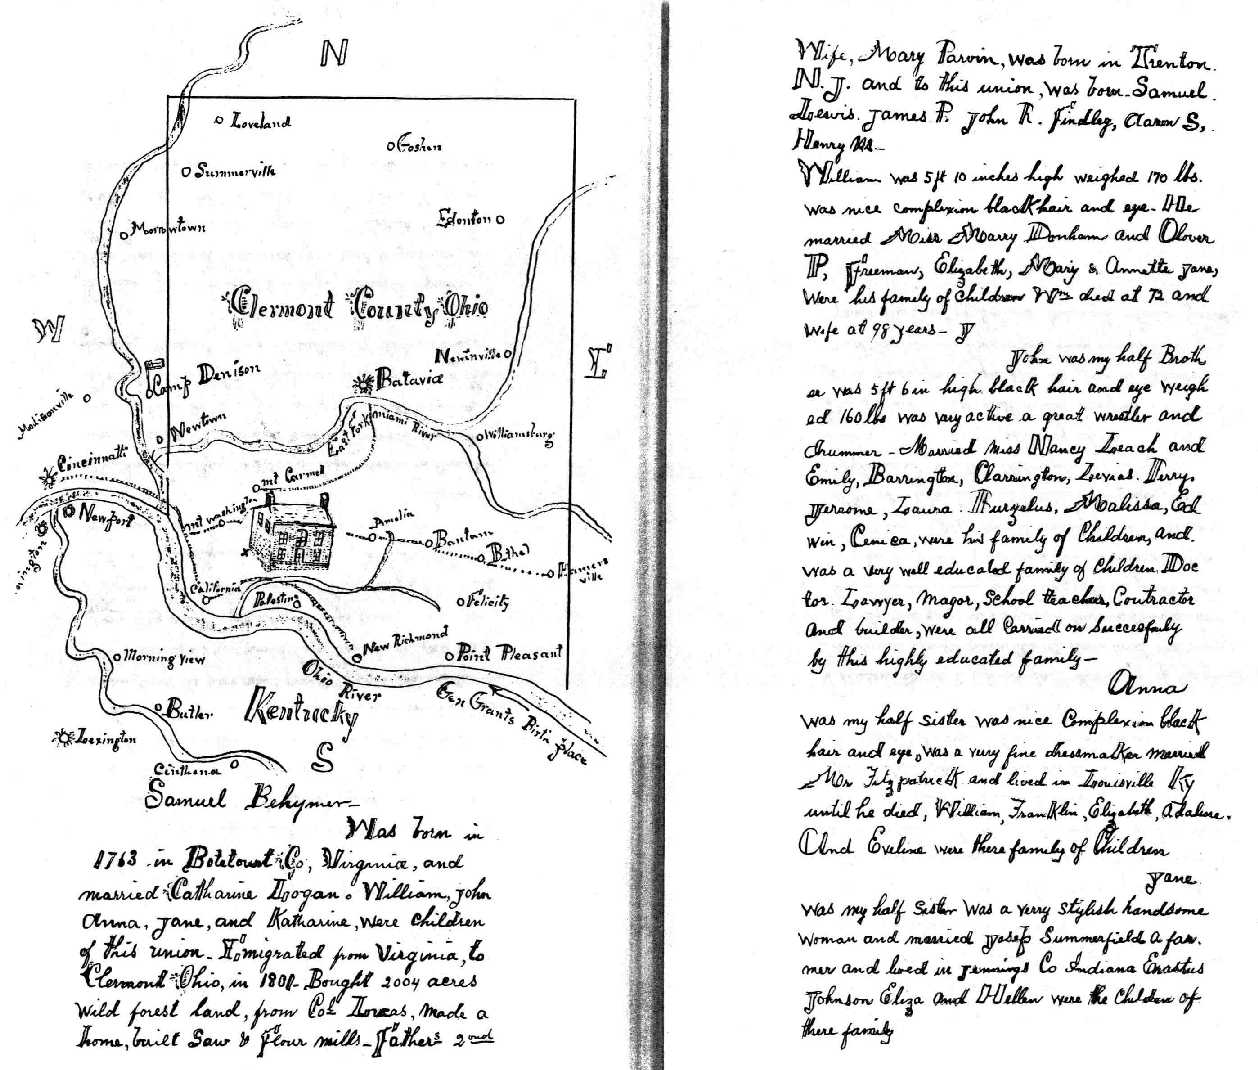 N
Loveland
Goshen
Summerville
Morrowtown
Edenton
Clermont County Ohio
W
E
Newinville
Camp Denison
Batavia
Madisonville
Newtown
East Fork Miami River
Williamsburg
Cincinnatti
Mt Carmel
Mt Washington
Newport
Amelia
Bantam
Bethel
Hamersville
California
Palestine
Felicity
New Richmond
Point Pleasant
Morning view
Ohio River
Gen Grants Birth place
Kentucky
Butler
Lexington
Cinthena
S
Samuel Behymer–
Was born in
1763 in Botetourt Co, Virginia, and
married Catharine Loogan. William, John
Anna, Jane, and Katharine, were children
of this union– Emigrated from Virginia, to
Clermont Ohio, in 1801– Bought 2004 acres
wild forest land, from Col Lucas, made a
home, built Saw & Flour mills– Fathers 2ond
Wife, Mary Parvin, was born in Trenton.
N. J. and to this union, was born– Samuel.
Lewis. James P. John R. Findley, Aaron S,
Henry M–
William was 5ft 10 inches high weighed 170 lbs.
was nice complexion black hair and eye– He
married Miss Marry Donham and Olover
P, Freeman, Elizabeth, Mary & Annetta Jane,
were his family of Children Wm died at 72 and
wife at 98 years–
John was my half Broth
er was 5ft 6 in high black hair and eye weigh
ed 160 lbs was vary active a great wrestler and
drummer– Married Miss Nancy Leach and
Emily, Barrington, Clarrington, Levias. Terry,
Jeraome, Laura. Euryalus, Malissa, Ed
win, Ceneca, were his family of Children, and.
was a very well educated family of Children. Doc
tor. Lawyer, Magor, School teacher, Contractor
and builder, were all Carried on Succesfuly
by this highly educated family–
Anna
was my half Sister was nice Complexion black
hair and eye, was a very fine dressmalker married
Mr Fitzpatrick and lived in Louisville Ky
until he died, William, Franklin, Elizabeth, Adaline.
And Eveline were there family of Children
Jane
was my half Sister was a verry stylish handsome
woman and married Josep Summerfield a far.
mer and lived in Jennings Co Indiana Erastus
Johnson Eliza and Hellen were the Children of
there family